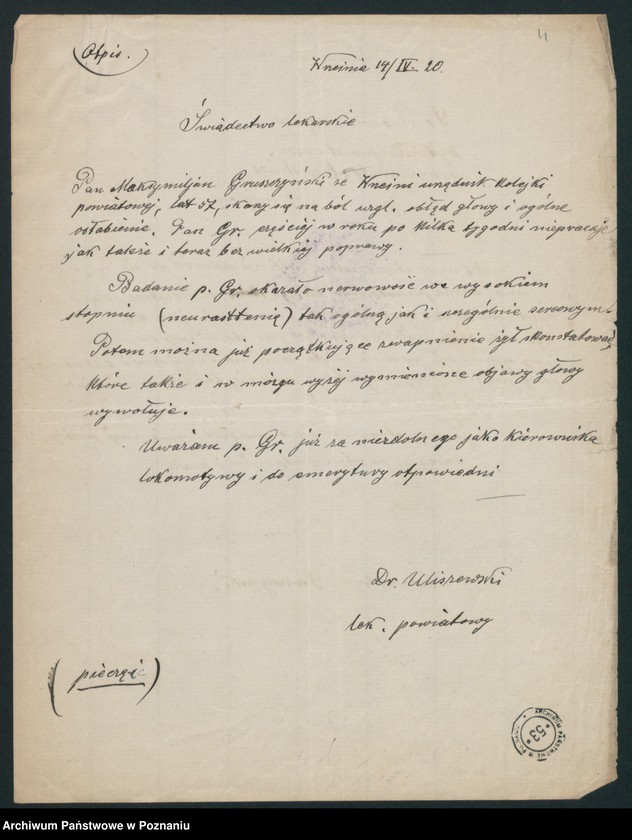 (Otpis.)
4
Wrześnie 14/IV. 20.
Świadectwo lekarskie
Pan Maksymiljan Gruszczyński ze Wrześni urzędnik kolejki
powiatowej, lat 57, skarży się na ból wzgl. obłęd głowy i ogólne
osłabienie. Pan Gr. częściej w roku po kilka tygodni niepracuje
jak także i teraz bez wielkiej poprawy.
Badanie p. Gr. okazało nerwowość we wysokiem
stopniu (neurasttenią) tak ogólną jak i szczególnie sercowym.
Potem można już początkujące zwapnienie żył skonstatować,
które także i w mózgu wyżej wymienione objawy głowy
wywołuje.
Uważam p. Gr. już za niezdolnego jako kierownika
lokomotywy i do emerytury otpowiedni
Dr. Uliszewski
lek. powiatowy
(pieczęć)
ARCHIWUM PAŃSTWOWE W POZNANIU
* 53 *
Archiwum Państwowe w Poznaniu